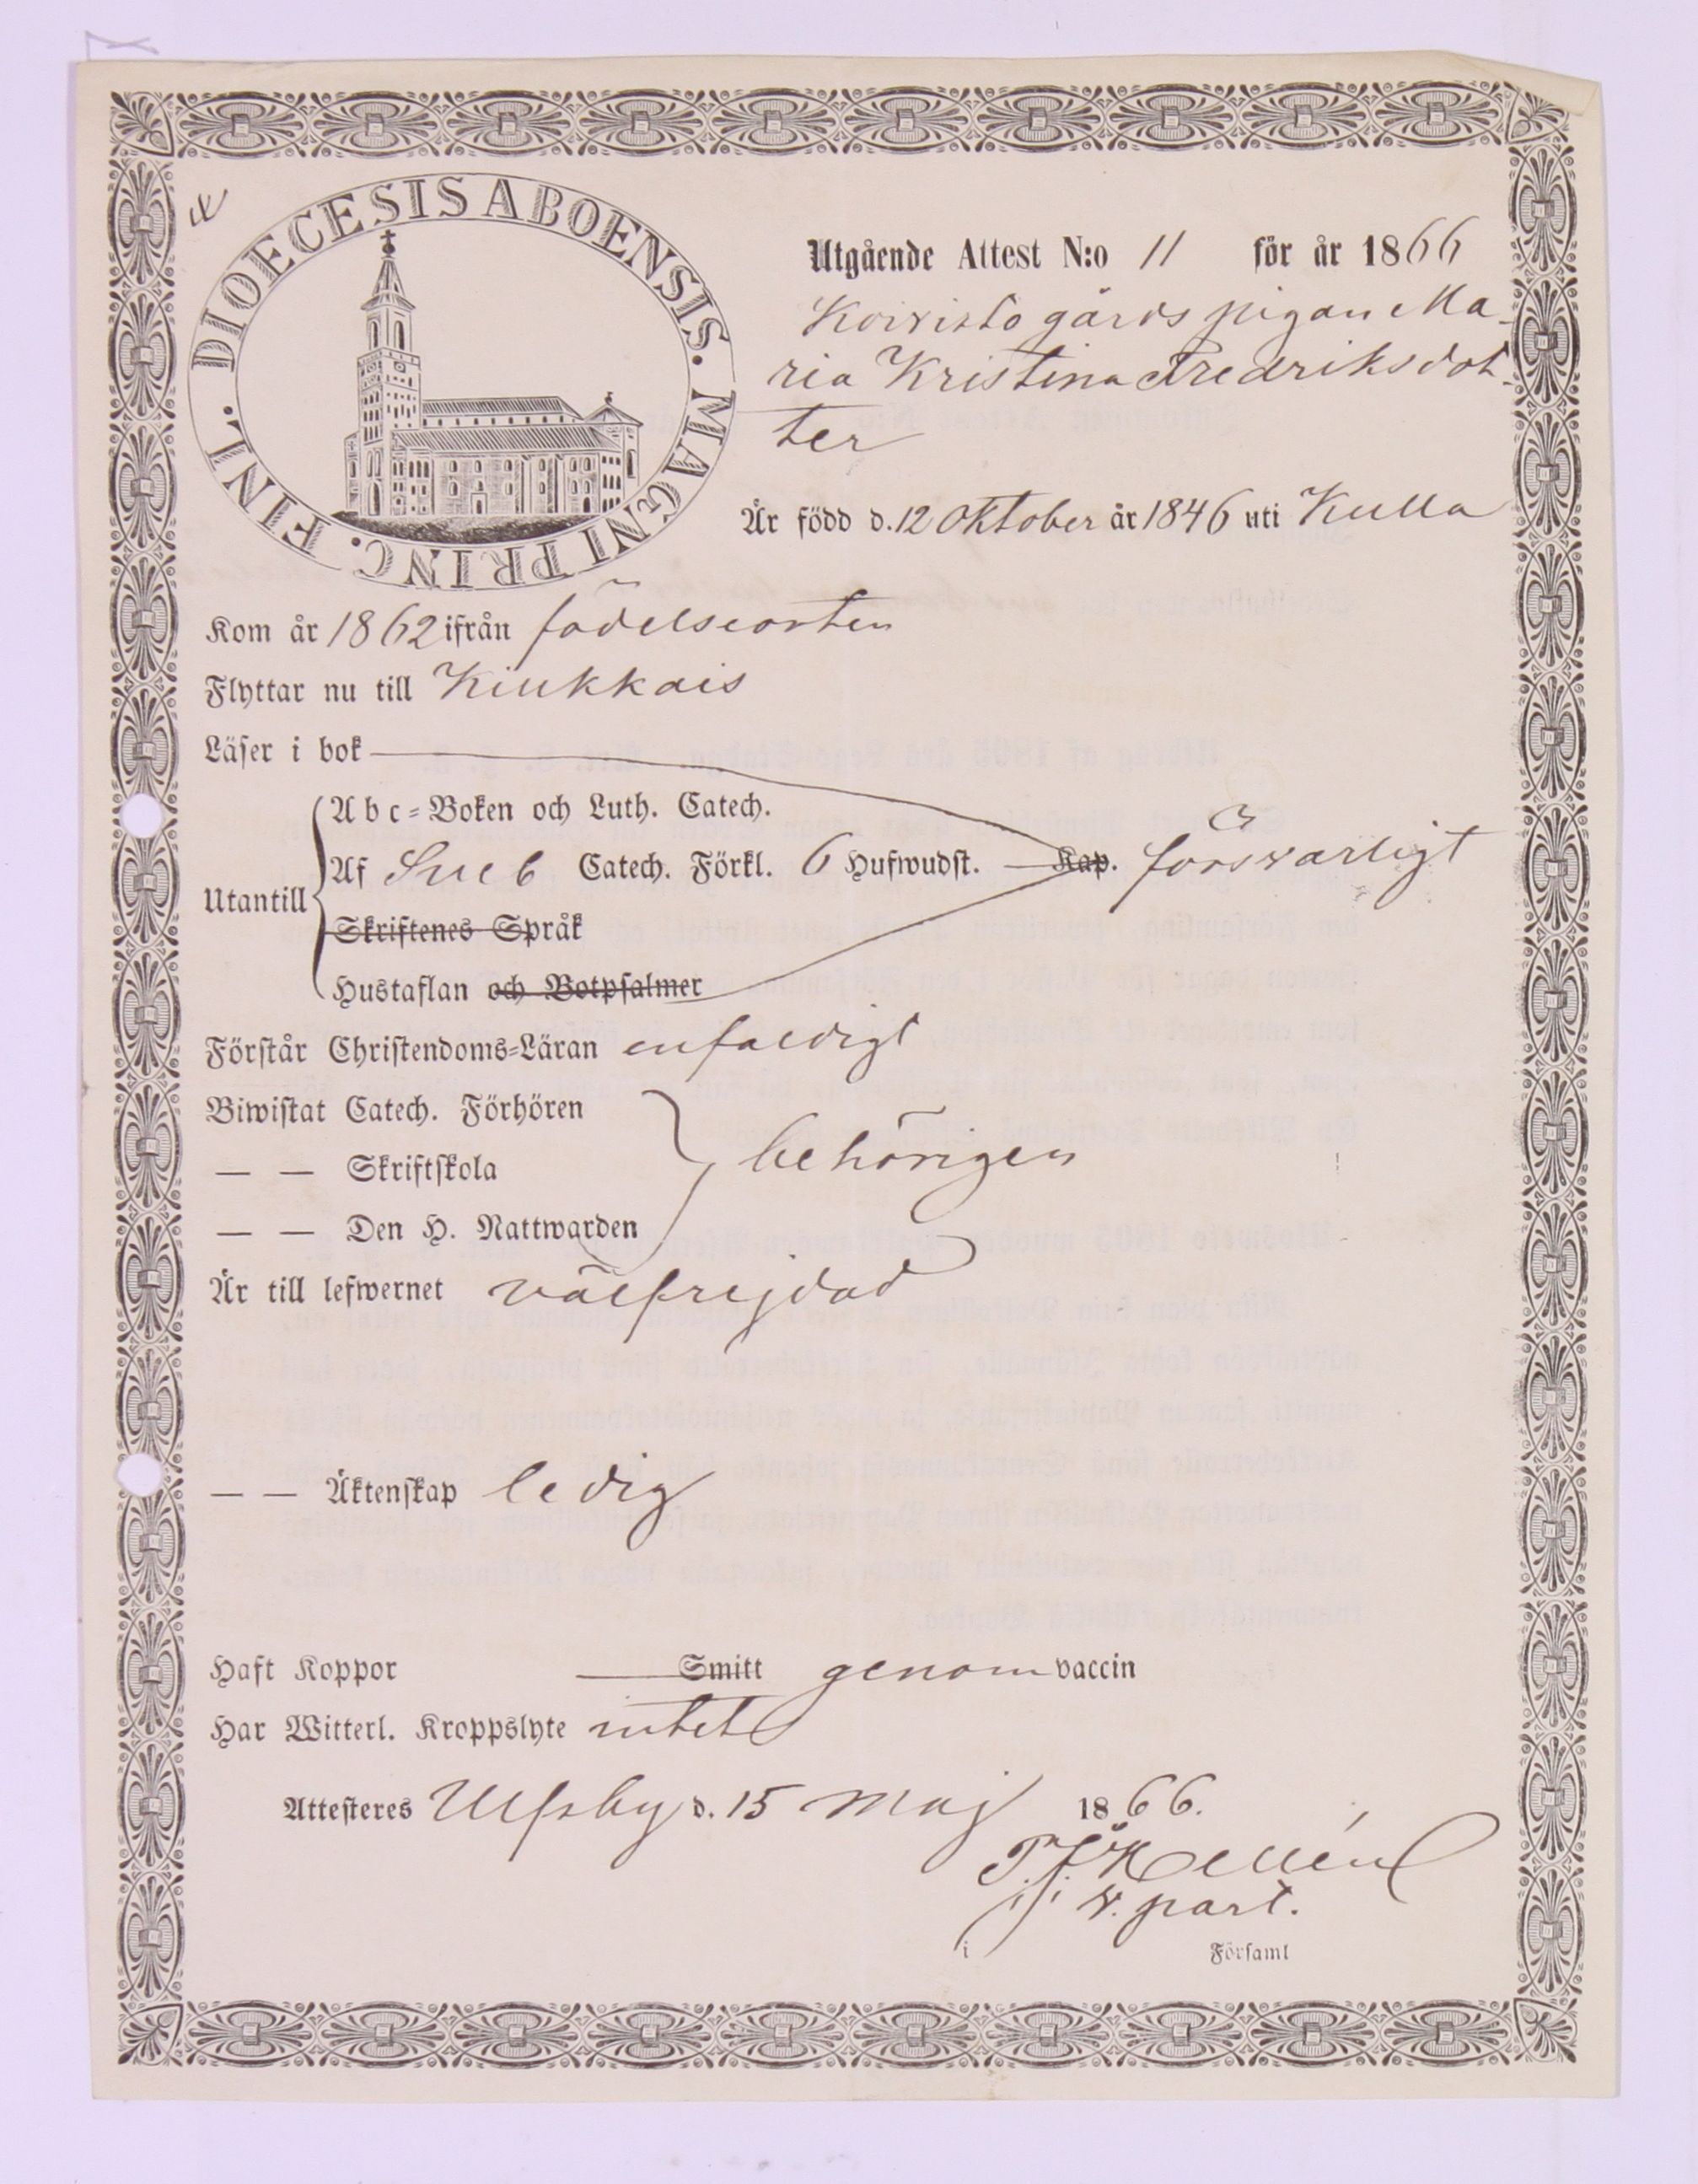 DIOECESIS ABOENSIS. MAGNI PRINC. FINL.
Utgående Attest N:o 11 för år 1866
Koivisto gårds pigan Ma-
ria Kristina Fredriksdot-
ter
Är född d. 12 Oktober år 1846 uti Kulla
Kom år 1862 ifrån födelseorten
Flyttar nu till Kiukkais
Läser i bok
Abc-Boken och Luth. Catech.
Utantill Af Sueb Catech. Förkl. 6 Hufwudst. Kap. försvarligt
Skriftenes Språk
Hustaflan och Botpsalmer
Förstår Christendoms-Läran enfaldigt
Biwistat Catech. Förhören
— — Skriftskola behörigen
— — Den H. Nattwarden
Är till lefwernet välfrejdad
— — Äktenskap ledig
Haft Koppor Smitt genom vaccin
Har Witterl. Kroppslyte intet
Attesteres Ulfsby d. 15 Maj 1866.
Hellén
v. past.
i Församl